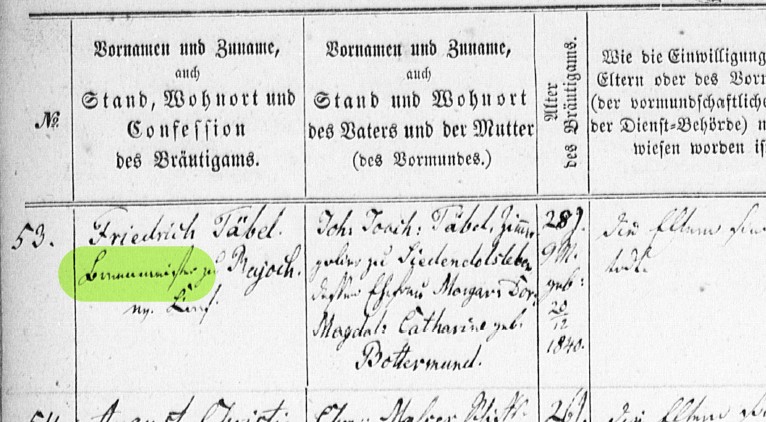 №.
Vornamen und Zuname,
auch
Stand, Wohnort und
Confession
des Bräutigams.
Vornamen und Zuname,
auch
Stand und Wohnort
des Vaters und der Mutter
(des Vormundes.)
Alter
des Bräutigams.
Wie die Einwilligung
Eltern oder des Vorm
(der vormundschaftliche
der Dienst=Behörde) n
wiesen worden is
53.
Friedrich Täbel.
Brennmeister zu
ev. Conf.
Joh: Joach: Täbel, Zimmer-
zu Siedendolsleben
dessen Ehefrau Margar: Dor:
Magdal: Catharine geb:
Bottermund.
28J.
9M.
geb:
20
12
1840.
die Eltern sind
todt.
54.
August Christ
26J.
die Eltern